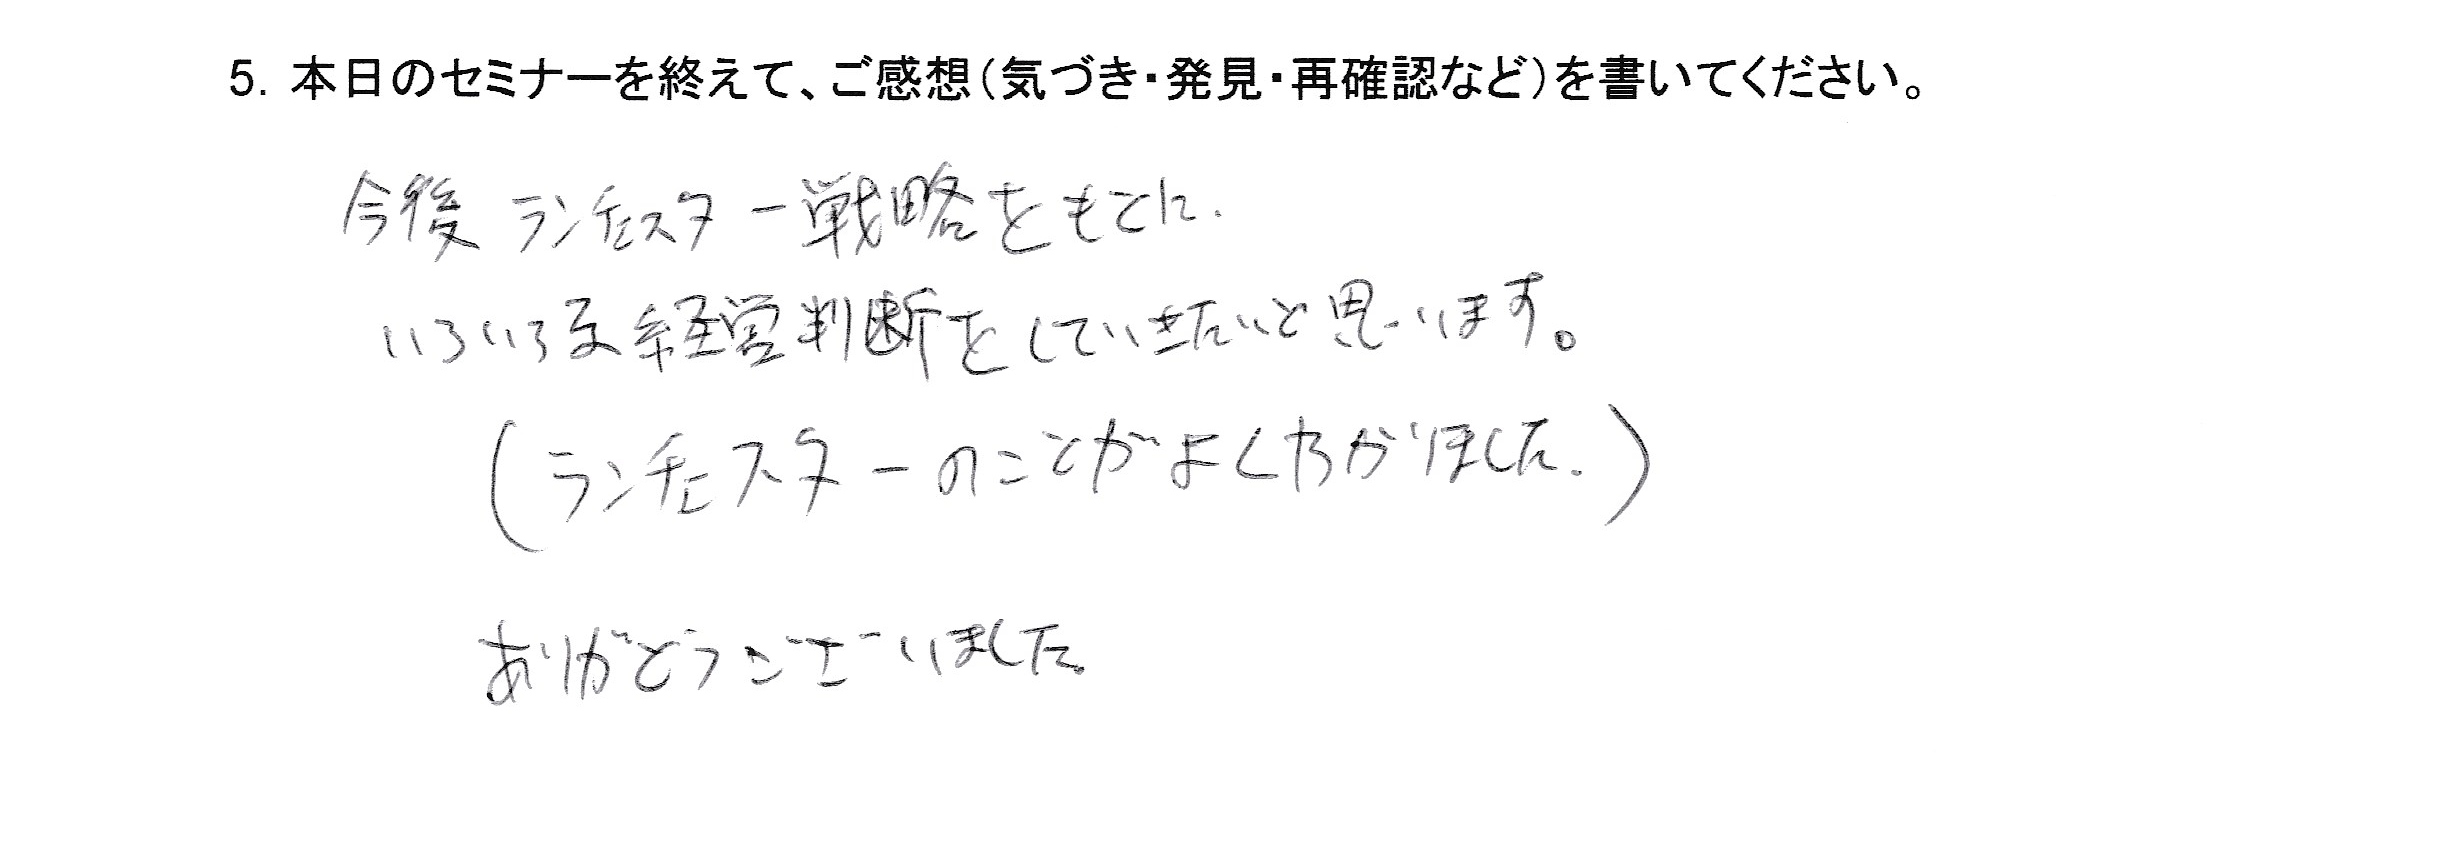 5. 本日のセミナーを終えて、ご感想(気づき・発見・再確認など)を書いてください。
今後 ランチェスター戦略をもとに.
いろいろな経営判断をしていきたいと思います。
(ランチェスターのことがよくわかりました.)
ありがとうございました。